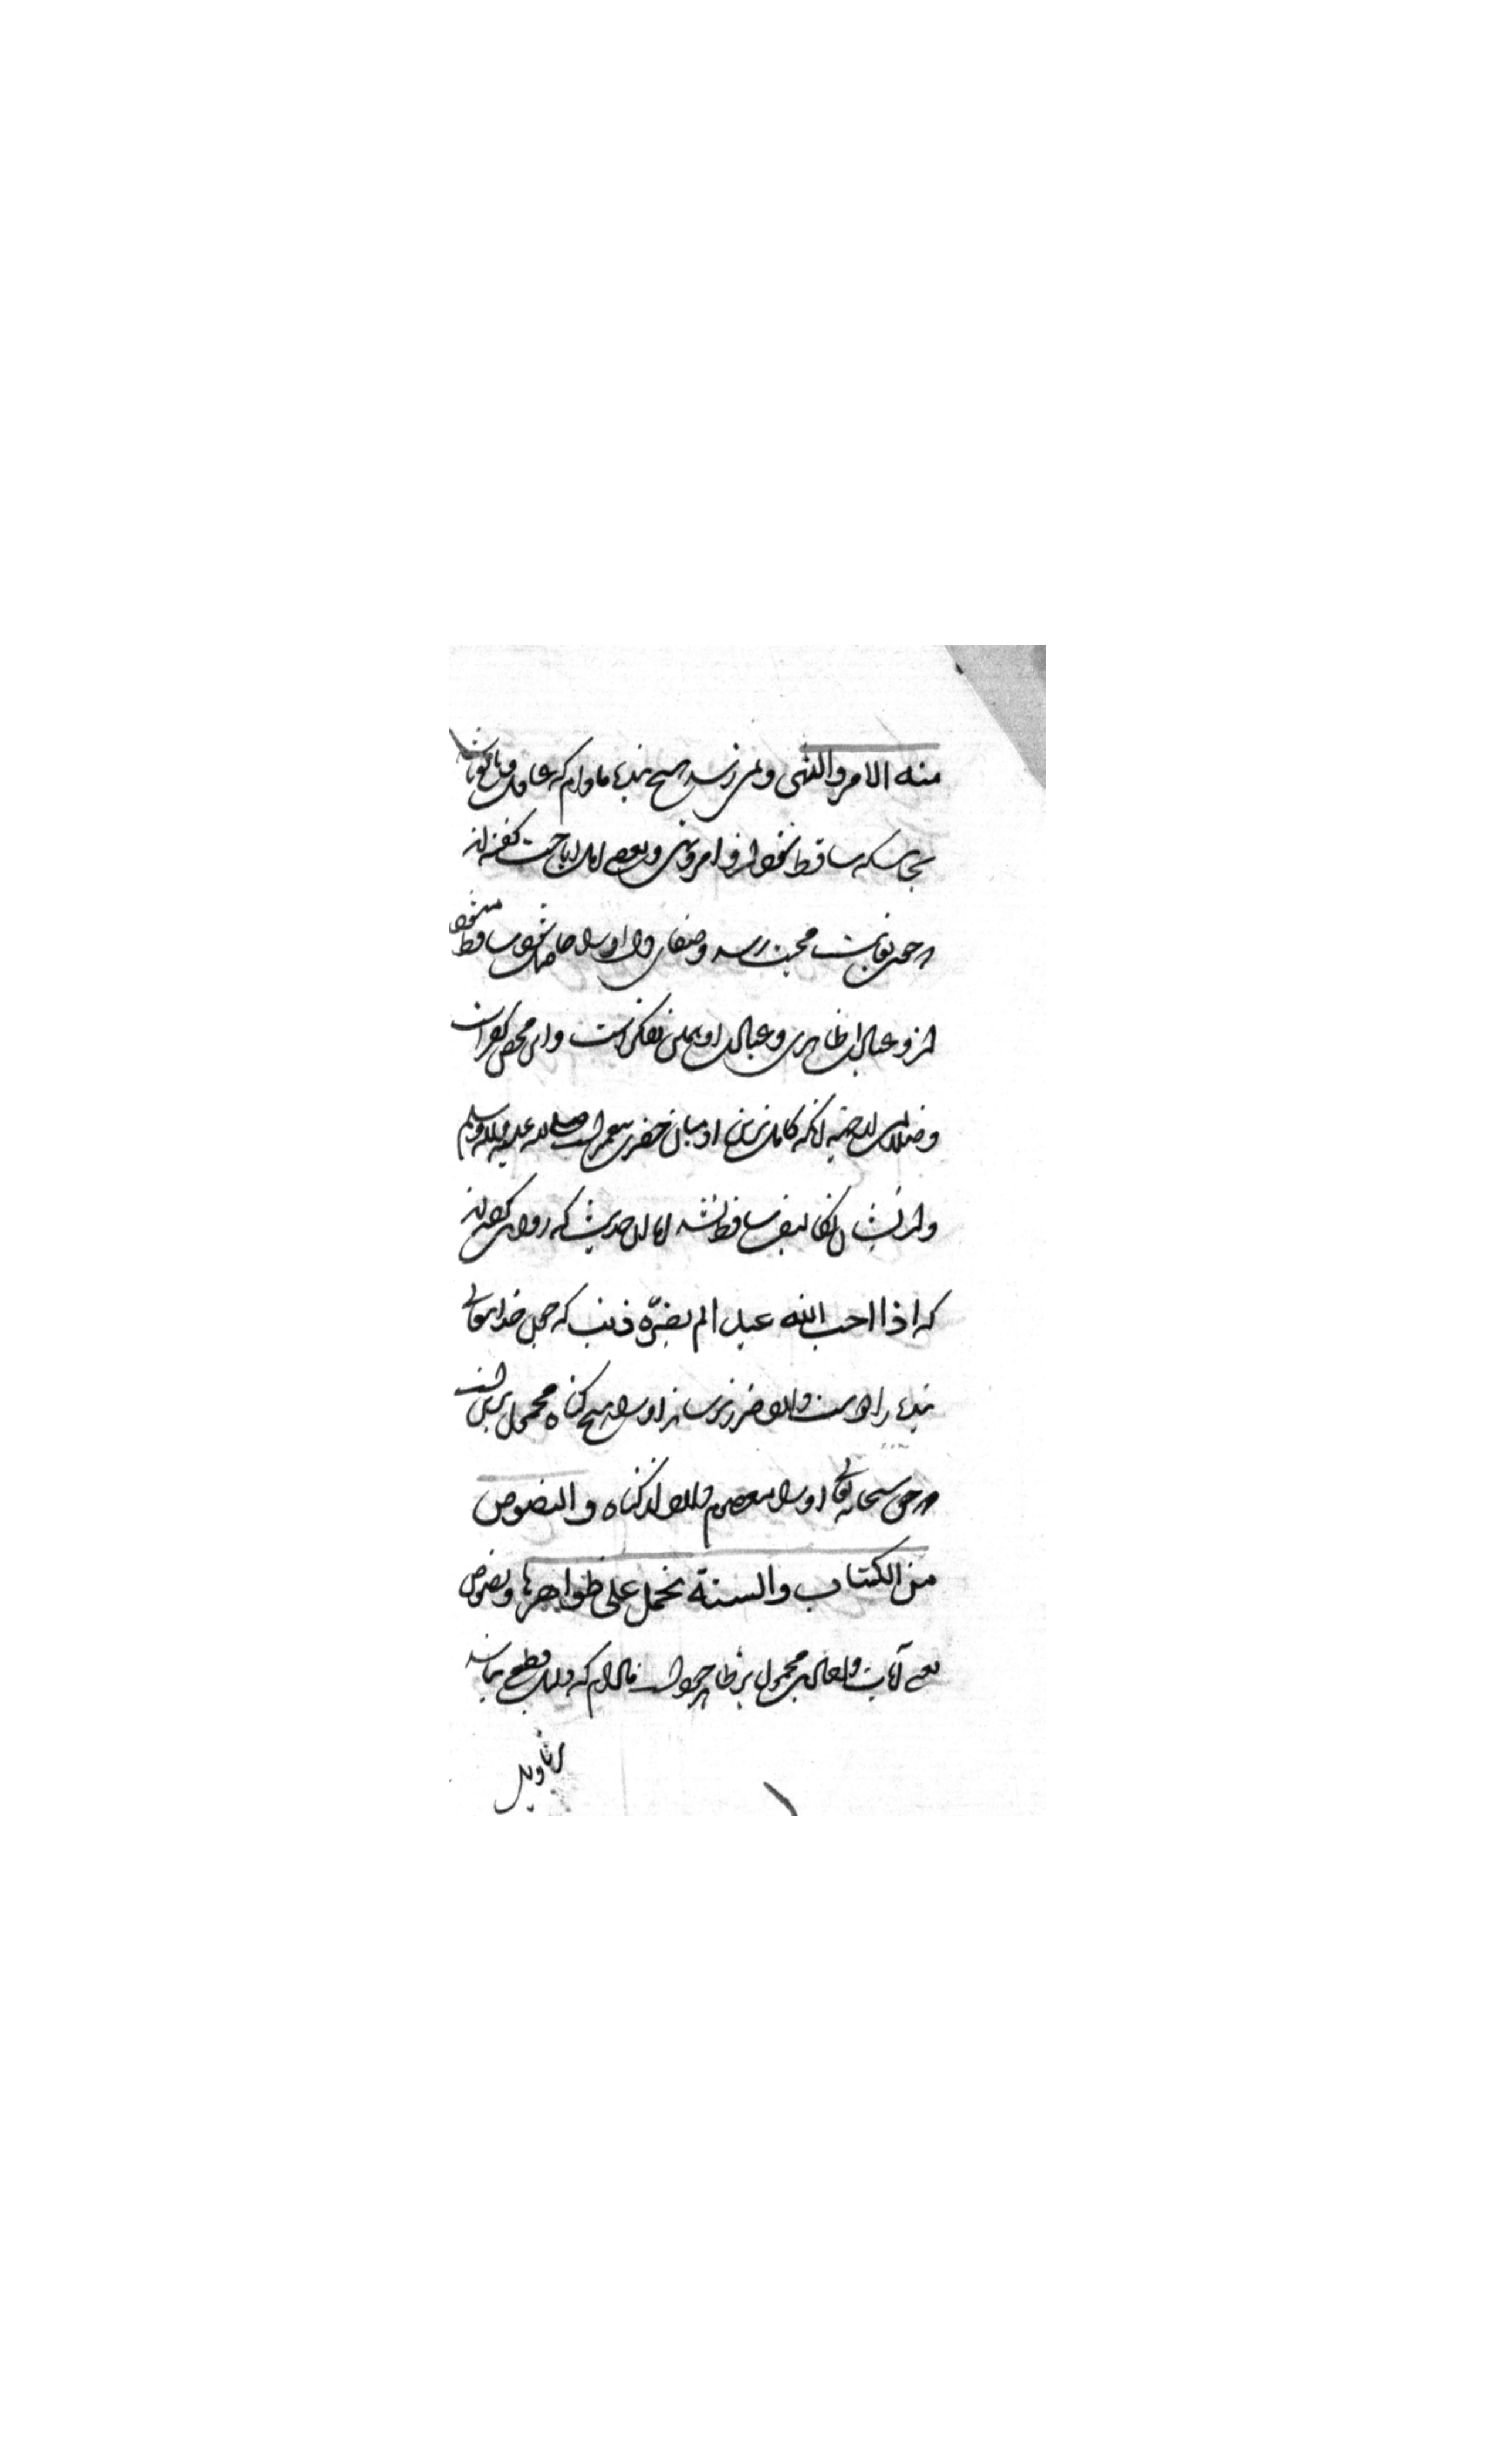 منه الامر والنهی و نمی‌رسد هیچ بنده مادام که عاقل و بالغ باشد
بجائیکه ساقط شود از و امر و نهی و بعضی اهل اباحت گفته‌اند
چون بغایت محبت رسد و صفای دل او را حاصل شود ساقط میشود
از و عبادات ظاهری و عبادت او همان تفکر است و این محض کفر است
و ضلالت از جهت آنکه کاملترین ادمیان حضرت پیغمبر است صلی الله علیه و آله وسلم
و از ایشان تکالیف ساقط نشد اما این حدیث که روایت کرده‌اند
که اذا احب الله عبدا لم یضرّه ذنب که چون خدایتعالی
بنده را دوست دارد ضرر نرساند او را هیچ گناه محمول برین است
که حق سبحانه تعالی او را معصوم دارد از گناه والنصوص
من الکتاب والسنة تحمل علی ظواهرها و نصوص
یعنی آیات و احادیث محمول بر ظاهر خود است مادام که دلیل قطعی نباشد
بر تاویل